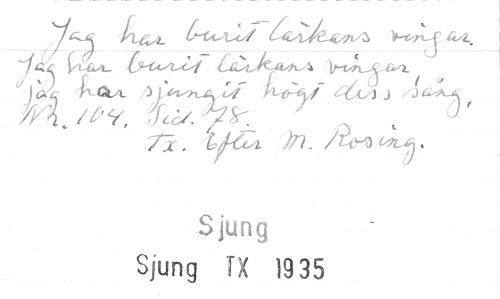 Jag har burit lärkans vingar.
Jag har burit lärkans vingar,
jag har sjungit högt dess sång,
Nr. 104. Sid. 78.
Tx. Efter M. Rosing.
Sjung
Sjung TX 1935